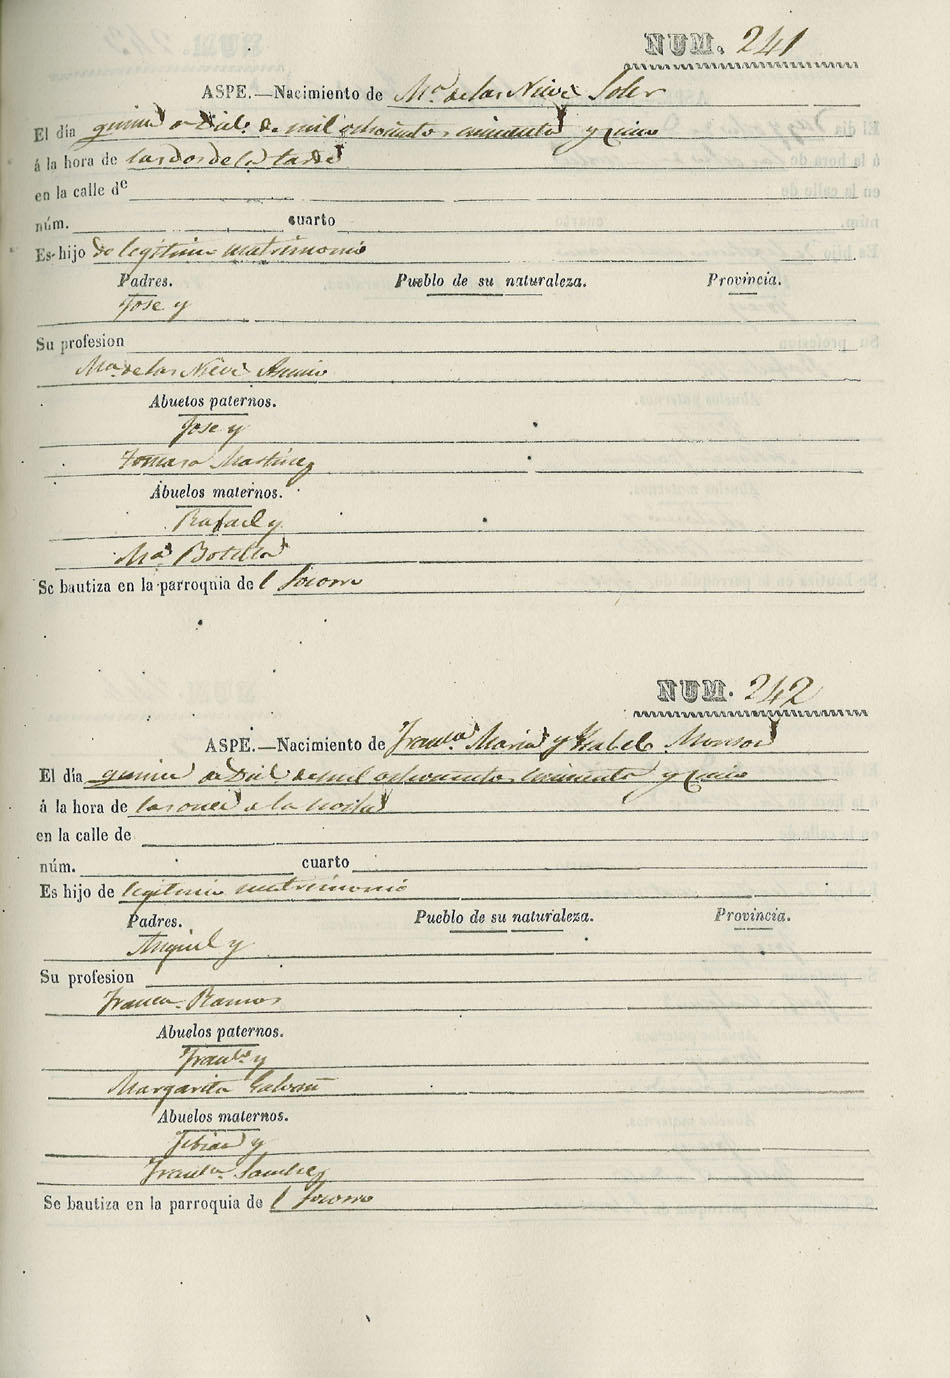 NUM. 241
ASPE.—Nacimiento de Mª de las Nieves Soler
El día quince de Dice de mil ochocientos cincuenta y cinco
á la hora de las dos de la tarde
en la calle de
núm. cuarto
Es hijo de legitimo matrimonio
Padres. Pueblo de su naturaleza. Provincia.
Jose y
Su profesion
Mª de las Nieves
Abuelos paternos.
Jose y
Tomasa Martinez
Abuelos maternos.
Rafael y
Mª Botella
Se bautiza en la parroquia del Socorro
NUM. 242
ASPE.—Nacimiento de Franca Maria y Ysabel
El día quince de Dice de mil ochocientos cincuenta y cinco
á la hora de las once de la noche
en la calle de
núm. cuarto
Es hijo de legitimo matrimonio
Padres. Pueblo de su naturaleza. Provincia.
Miguel y
Su profesion
Franca Ramos
Abuelos paternos.
Franco y
Margarita Galvañ
Abuelos maternos.
y
Franca Sanchez
Se bautiza en la parroquia del Socorro